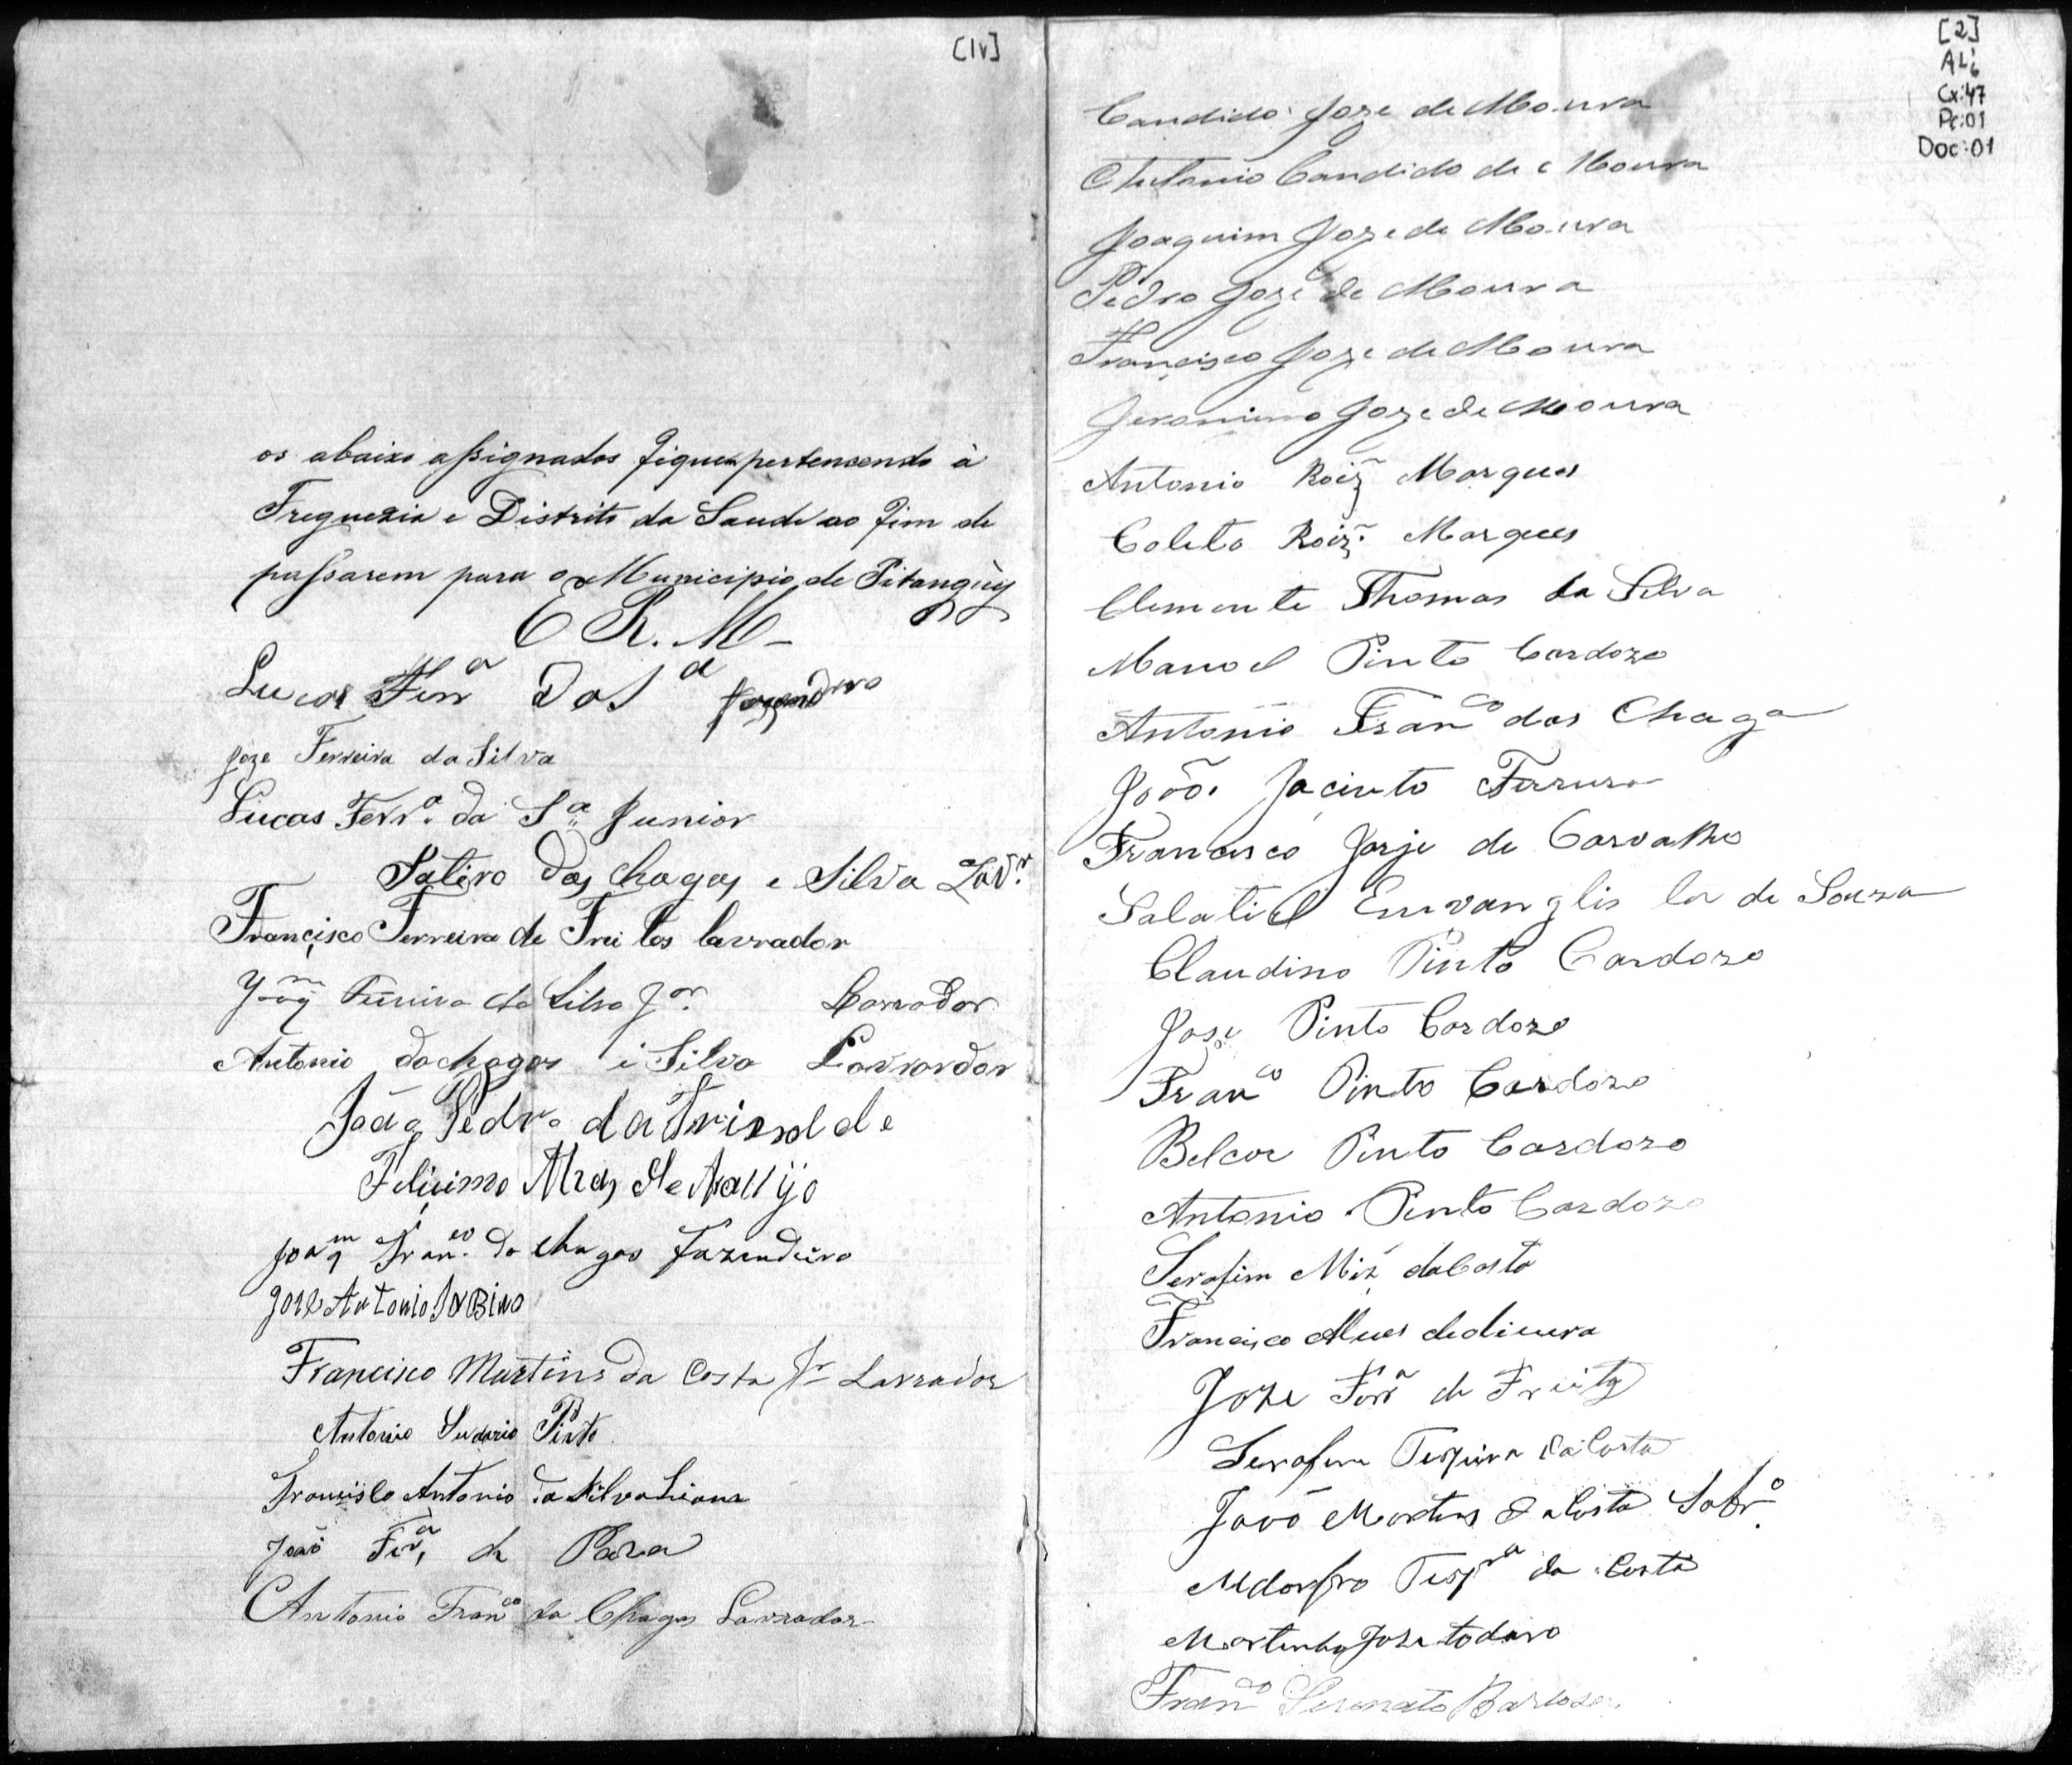 [1v]
os abaixo assignados fiquem pertencendo à
Freguezia e Distrito da Saude ao fim de
passarem para o Municipio de Pitanguy
E R. M
Lucas Ferr.ª da S.ª fazendeiro
Joze Ferreira da Silva
Lucas Ferr.ª da S.ª Junior
Satiro das Chagas e Silva Lav.r
Francisco Ferreira de Freitas lavrador
Joaq.m Ferreira da Silva J.or Lavrador
Antonio da chagas i Silva Lavrardor
João Pedro da Trindde
Feliçimo Alz de Araujo
Joaq.m Fran.co da chagas fazendeiro
Joze Antonio Sabino
Francisco Martins da Costa Jr Lavrador
Antonio Sudario Pinto
Francisco Antonio da Silva
João Ferr.ª de Paza
Antonio Fran.co da Chagas Lavrador
[2]
AL6
Cx:47
Pc:01
Doc:01
Candido Joze de Moura
Antonio Candido de Moura
Joaquim Joze de Moura
Pedro Joze de Moura
Francisco Joze de Moura
Jeronimo Joze de Moura
Antonio Roiz Marques
Coleta Roiz Marques
Clemente Thomas da Silva
Manoel Pinto Cardozo
Antonio Fran.co das Chaga
João Jacinto Ferrura
Francisco Jorje de Carvalho
Salatiel Emvanglis ta de Souza
Claudino Pinto Cardozo
Jose Pinto Cardozo
Fran.co Pinto Cardozo
Belcor Pinto Cardozo
Antonio Pinto Cardozo
Serafim Miz da Costa
Francisco Alves de
Joze Ferr.ª de Freitas
Serafim Teixeira da Costa
João Martins da Costa Sobr.o
Teix.ra da Costa
Martinho Joze
Fran.co Barboza